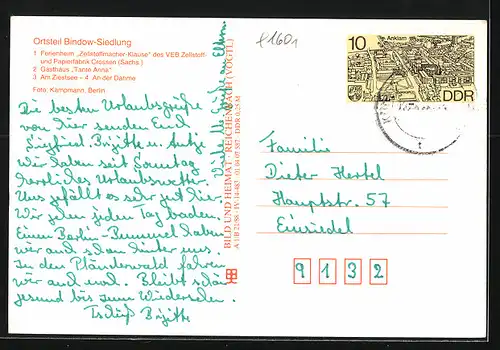 Ortsteil Bindow-Siedlung
1 Ferienheim „Zellstoffmacher-Klause" des VEB Zellstoff-
und Papierfabrik Crossen (Sachs.)
2 Gasthaus „Tante Anna"
3 Am Ziestsee – 4 An der Dahme
Foto: Kampmann, Berlin
Die besten Urlaubsgrüße
von hier senden Euch
Siegfried, Brigitte u. Antje
Wir haben seit Sonntag
herrliches Urlaubswetter.
Uns gefällt es sehr gut hier.
Wir gehen jeden Tag baden.
Einen Berlin-Bummel haben
wir auch schon hinter uns.
In den Plänterwald fahren
wir auch mal. Bleibt schön
gesund bis zum Wiedersehen.
Tschüß Brigitte
Viele Grüße an Eltern
BILD UND HEIMAT REICHENBACH (VOGTL)
A 1/B 21/88 IV-14-483 01 04 07 387 DDR 0,25 M
f1601
10
Anklam
DDR
Familie
Dieter Hertel
Hauptstr. 57
Einsiedel
9 1 3 2